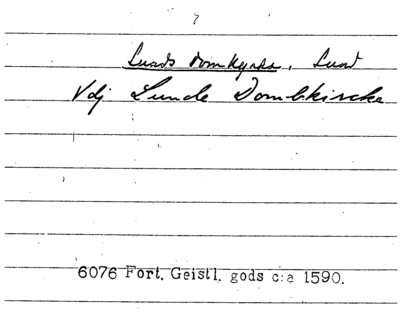 Lunds domkyrka, Lund
Vdj Lunde Dombkircke
6076 Fort. Geistl. gods c:a 1590.